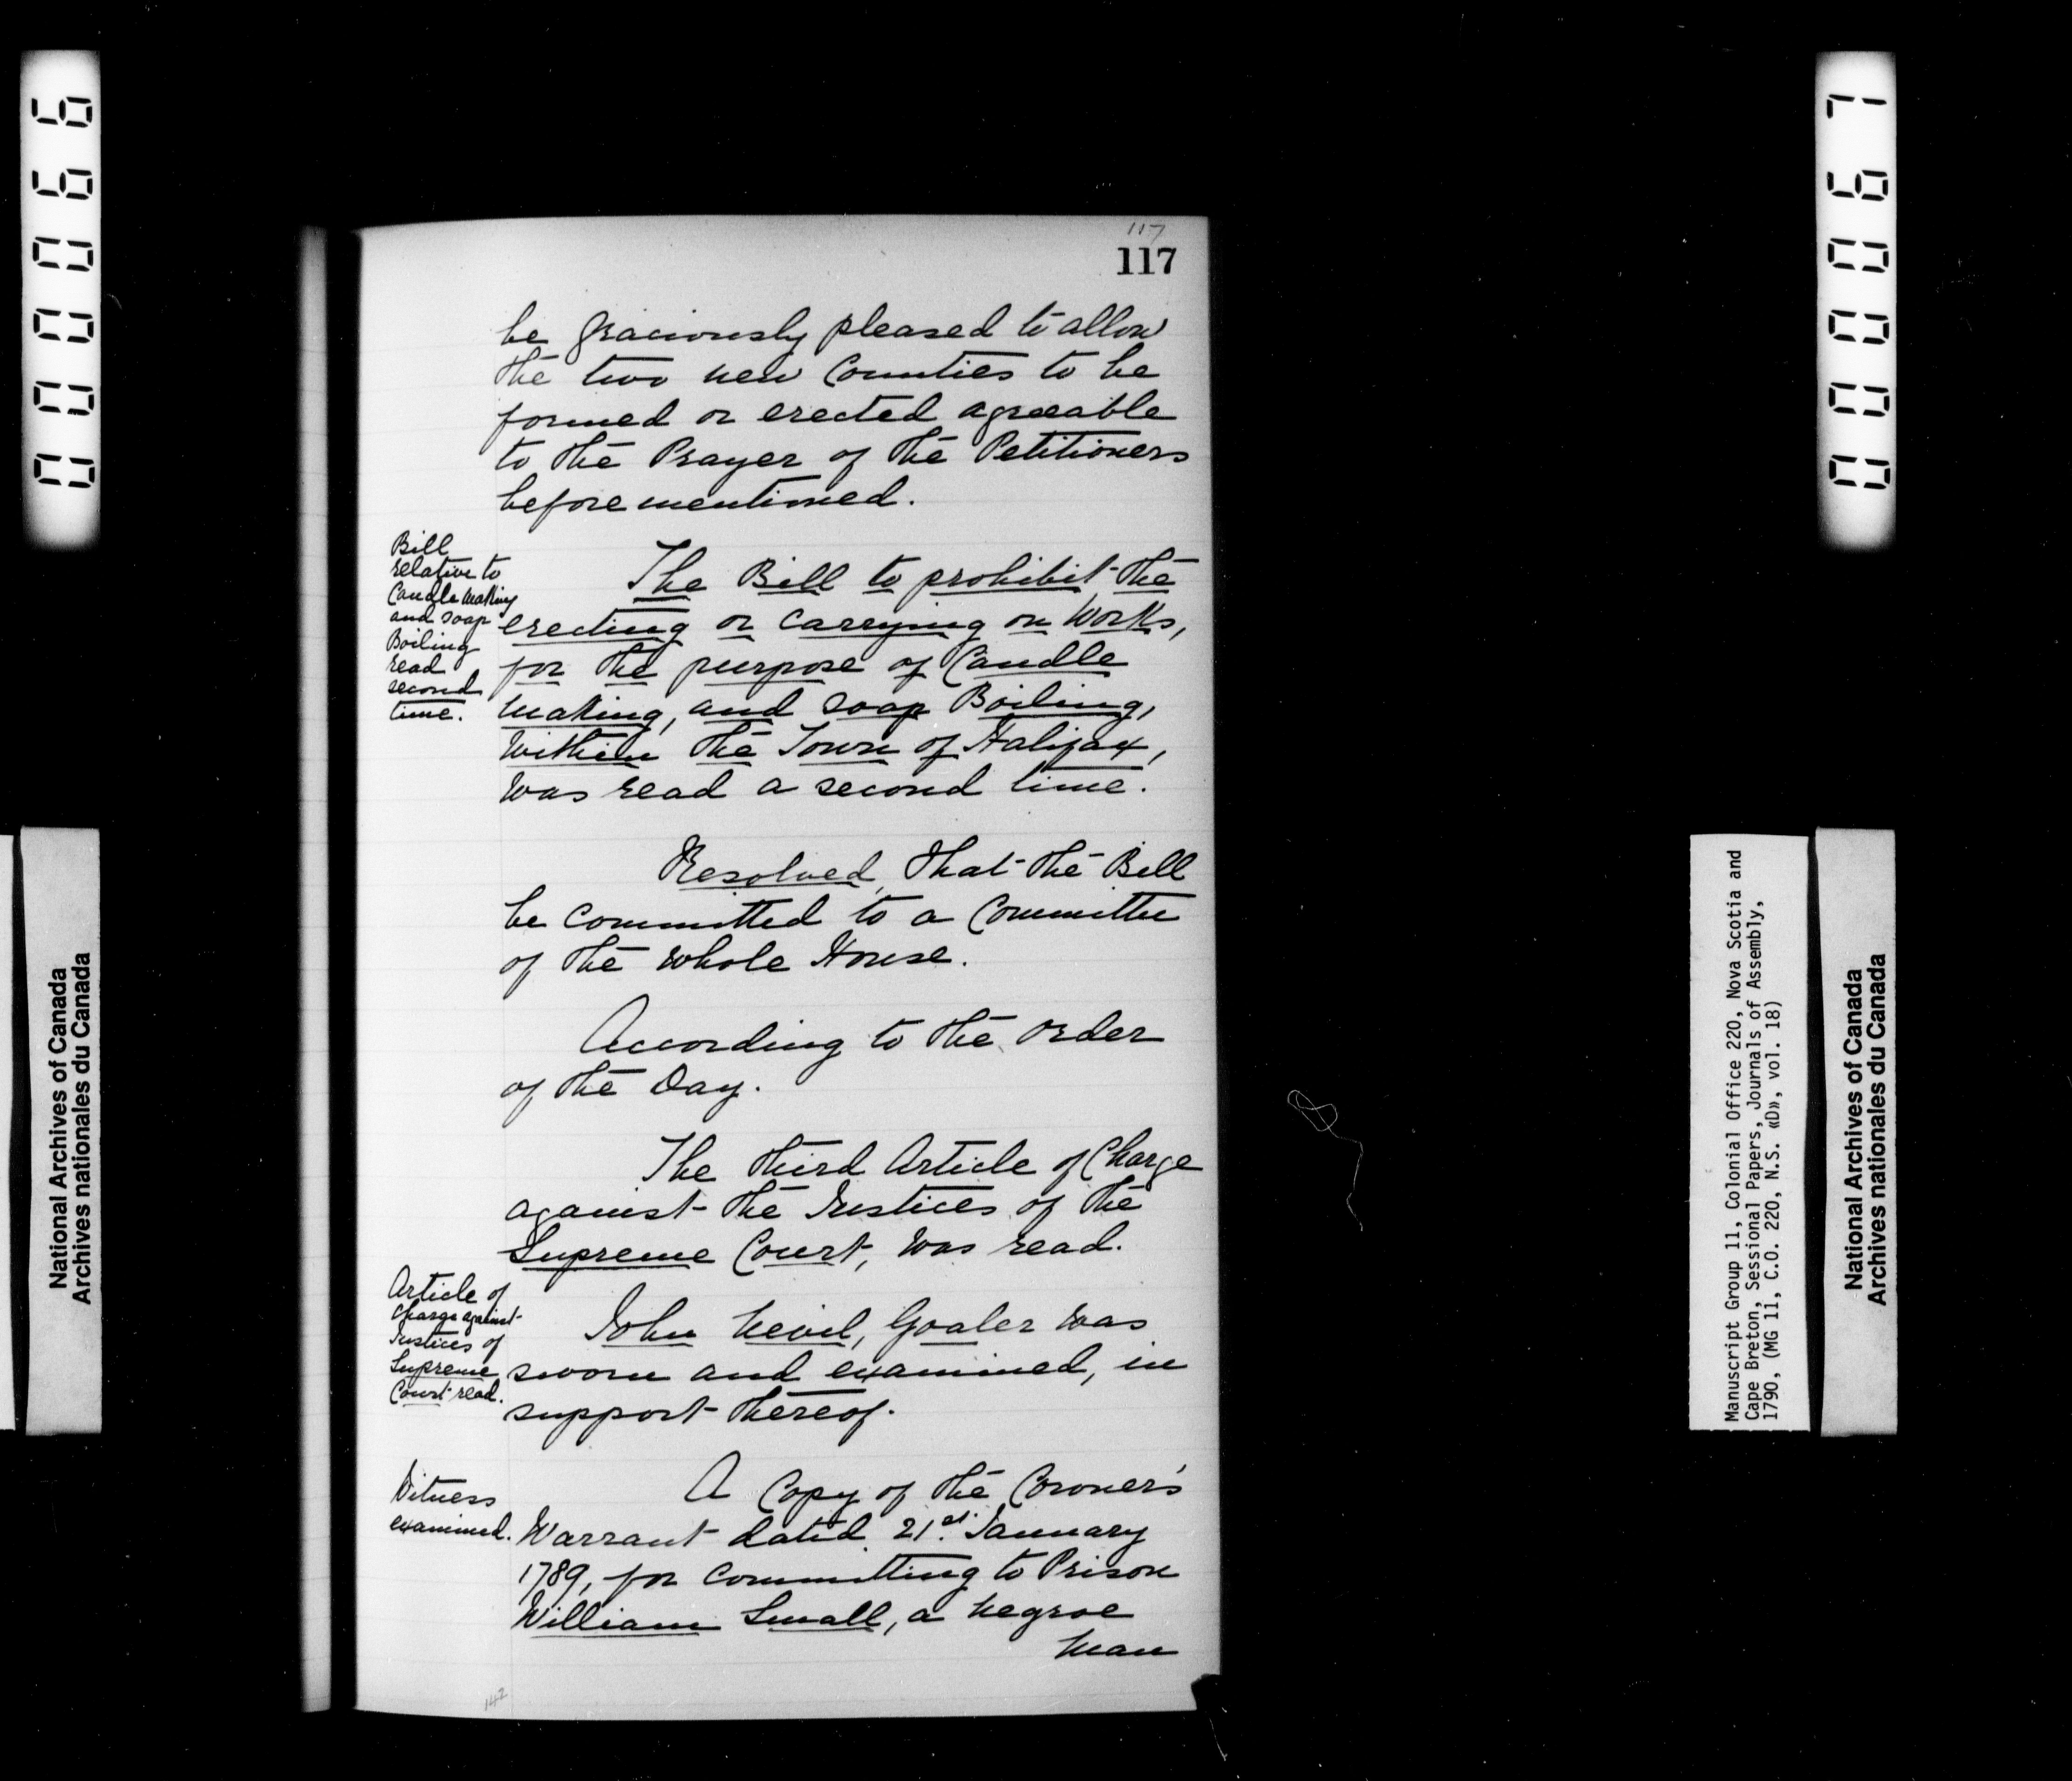 000066
National Archives of Canada
Archives nationales du Canada
117
117
be graciously pleased to allow
the two new Counties to be
formed or erected agreeable
to the Prayer of the Petitioners
beforementioned.
Bill
relative to
Candle making
and soap
Boiling
read
second
time.
The Bill to prohibit the
erecting or carrying on Works,
for the purpose of Candle
making, and soap Boiling,
within the Town of Halifax,
was read a second time.
Resolved, that the Bill
be committed to a Committee
of the whole House.
According to the order
of the Day.
The third Article of Charge
against the Justices of the
Supreme Court, was read.
Article of
Charge against
Justices of
Supreme
Court read.
John Nevil, Goaler was
sworn and examined, in
support thereof.
Witness
examined.
A Copy of the Coroner's
Warrant dated 21st. January
1789, for committing to Prison
William Small, a negroe
man
142
000067
Manuscript Group 11, Colonial Office 220, Nova Scotia and
Cape Breton, Sessional Papers, Journals of Assembly,
1790, (MG 11, C.O. 220, N.S. «D», vol. 18)
National Archives of Canada
Archives nationales du Canada